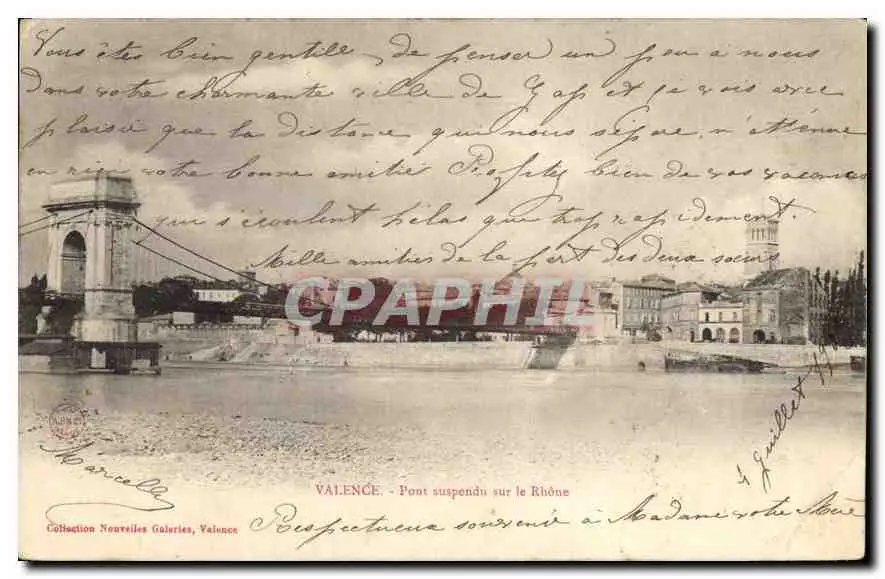 Vous êtes bien gentille de penser un peu a nous
dans votre charmante ville de Gap et je vois avec
plaisir que la distance qui nous sépare n'atténue
en rien votre bonne amitié Profitez bien de vos vacances
qui s'écoulent hélas que trop rapidement.
Mille amitiés de la part des deux sœurs
CPAPHIL
4 Juillet
Marcelle
VALENCE. - Pont suspendu sur le Rhône
Collection Nouvelles Galeries, Valence
Respectueux souvenir à Madame votre Mère